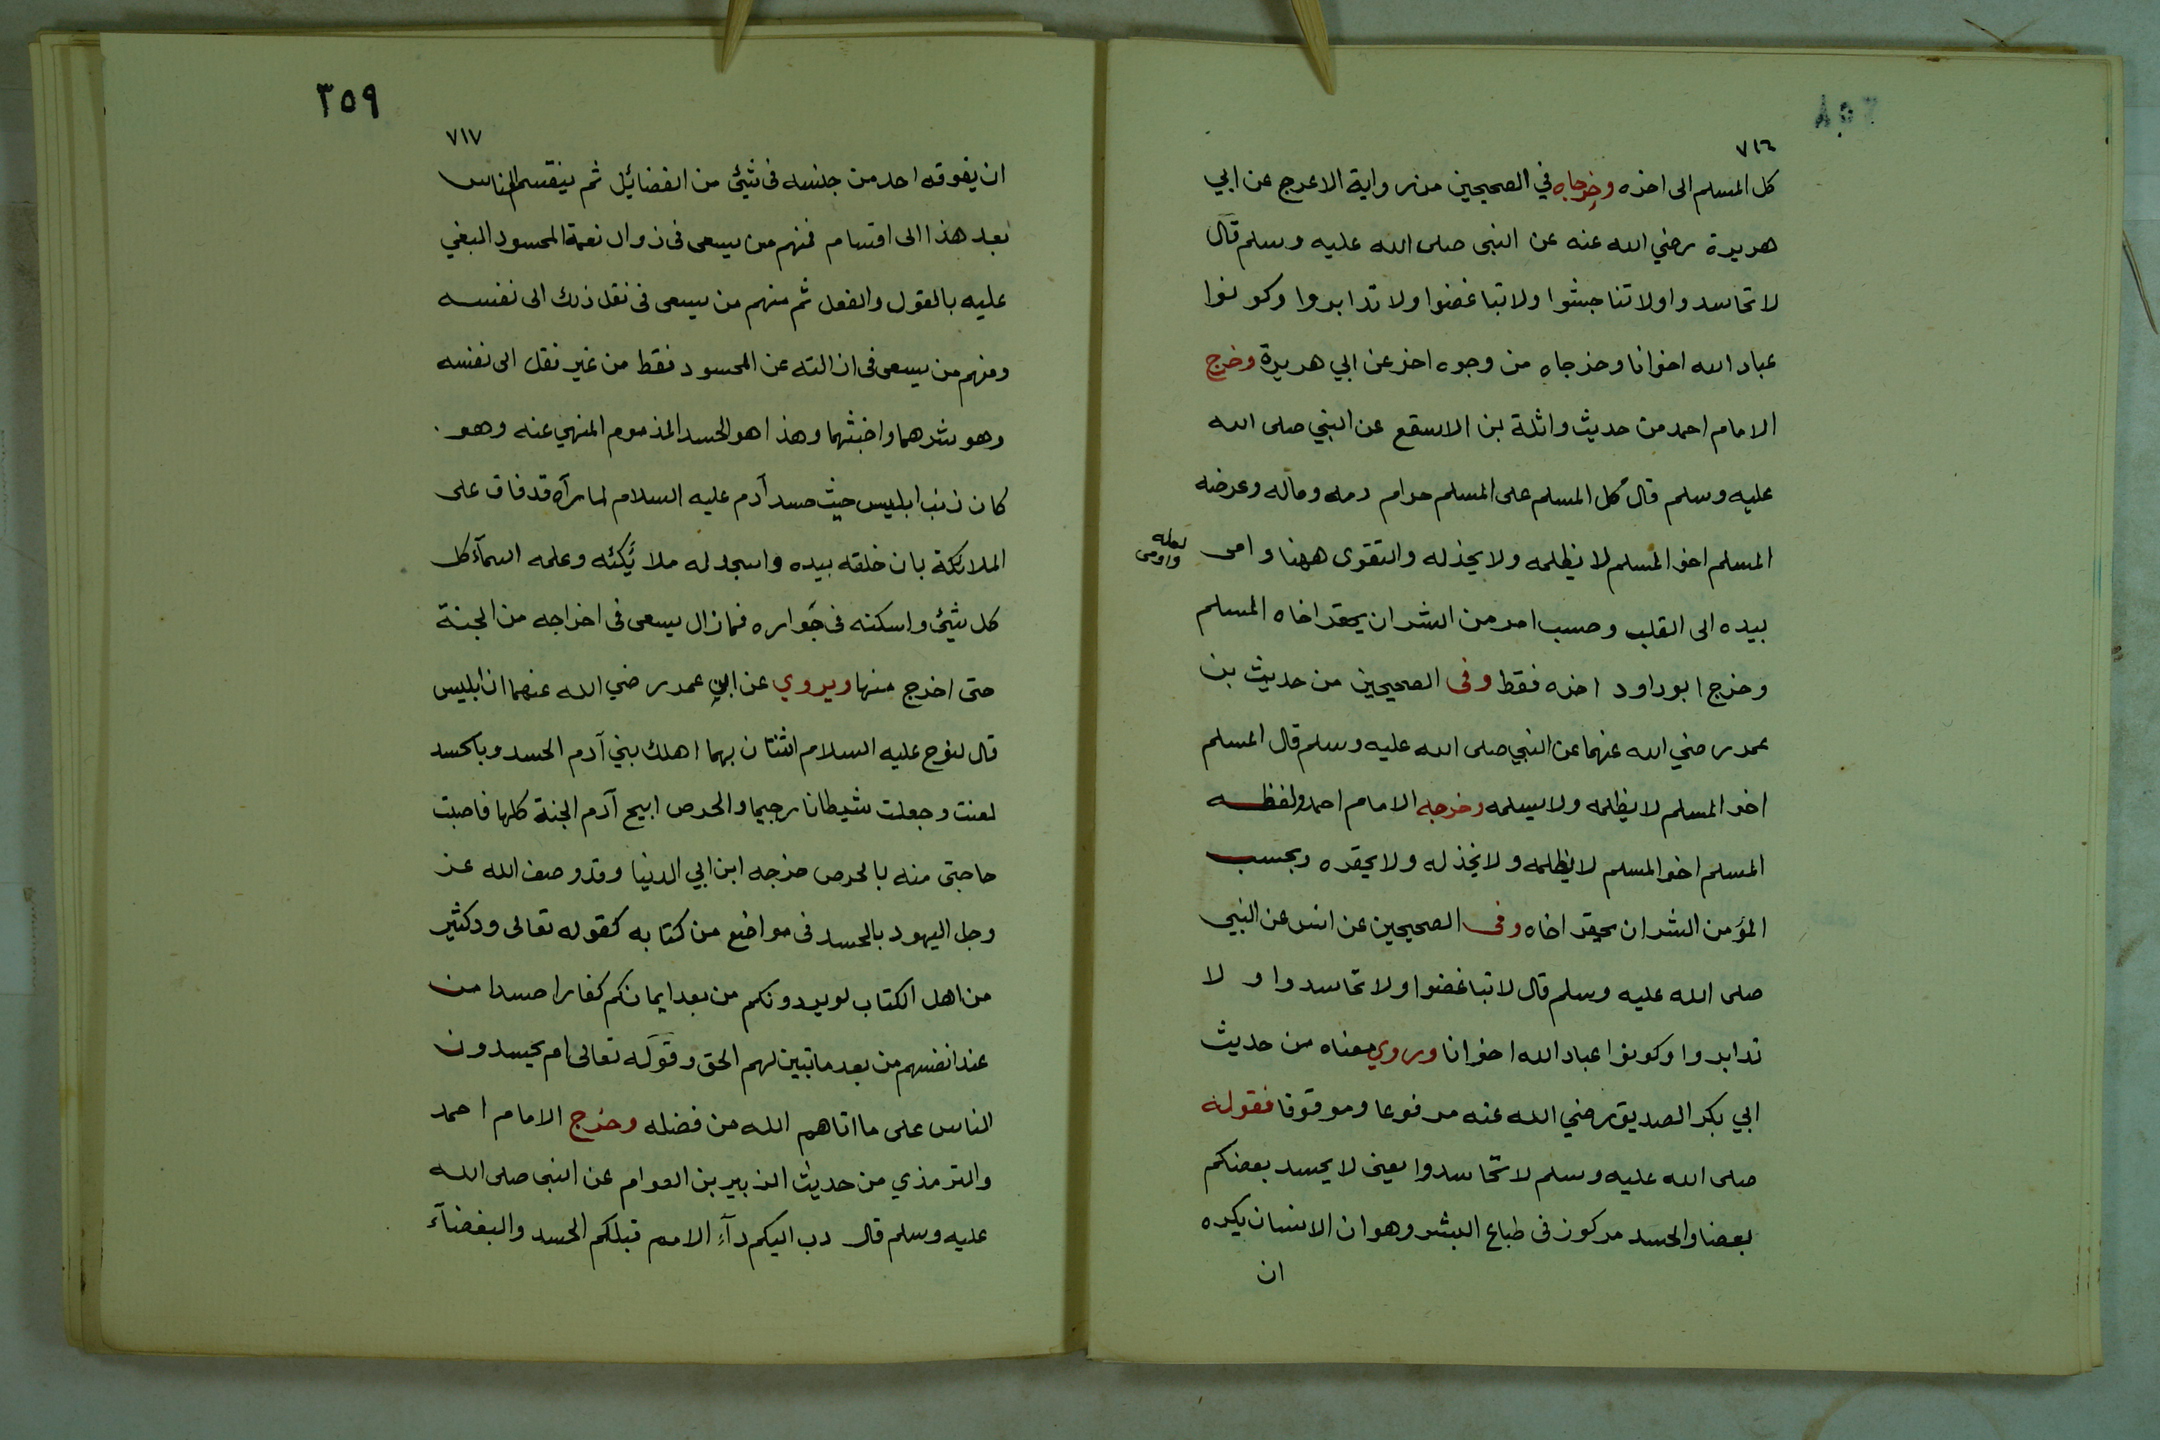 ٣٥٨
٧١٦
كل المسلم الى اخره وخرجاه في الصحيحين من رواية الاعرج عن ابي
هريرة رضي الله عنه عن النبى صلى الله عليه وسلم قال
لا تحاسدوا ولا تناجشوا ولا تباغضوا ولا تدابروا وكونوا
عباد الله اخوانا وخرجاه من وجوه اخر عن ابي هريرة وخرج
الامام احمد من حديث واثلة بن الاسقع عن النبي صلى الله
عليه وسلم قال كل المسلم على المسلم حرام دمه وماله وعرضه
المسلم اخو المسلم لا يظلمه ولا يخذله والتقوى ههنا وامى
لعله واومى
بيده الى القلب وحسب امرمن الشر ان يحقر اخاه المسلم
وخرج ابو داود اخره فقط وفى الصحيحين من حديث بن
عمر رضي الله عنهما عن النبي صلى الله عليه وسلم قال المسلم
اخو المسلم لا يظلمه ولا يسلمه وخرجه الامام احمد ولفظه
المسلم اخو المسلم لا يظلمه ولا يخذله ولا يحقره وبحسب
المؤمن الشر ان يحقر اخاه وفى الصحيحين عن انس عن النبي
صلى الله عليه وسلم قال لا تباغضوا ولا تحاسدوا و لا
تدابروا وكونوا عباد الله اخوانا وروي معناه من حديث
ابي بكر الصديق رضي الله عنه مرفوعا وموقوفا فقوله
صلى الله عليه وسلم لا تحاسدوا يعنى لا يحسد بعضكم
بعضا والحسد مركوز فى طباع البشر وهو ان الانسان يكره
ان
٣٥٩
٧١٧
ان يفوقه احد من جنسه فى شئ من الفضائل ثم ينقسم الناس
بعد هذا الى اقسام فمنهم من يسعى فى زوال نعمة المحسود البغي
عليه بالقول والفعل ثم منهم من يسعى فى نقل ذلك الى نفسه
ومنهم من يسعى فى ازالته عن المحسود فقط من غير نقل الى نفسه
وهو شرهما واخبثهما وهذا هو الحسد المذموم المنهي عنه وهو
كان ذنب ابليس حيث حسد آدم عليه السلام لما رآه قد فاق على
الملائكة بان خلقه بيده واسجد له ملائكته وعلمه اسمآء كل
كل شئ واسكنه فى جواره فما زال يسعى فى اخراجه من الجنة
حتى اخرج منها ويروي عن ابن عمر رضي الله عنهما ان ابليس
قال لنوح عليه السلام اثنتان بهما اهلك بني آدم الحسد وبالحسد
لعنت وجعلت شيطانا رجيما والحرص ابيح آدم الجنة كلها فاصبت
حاجتى منه بالحرص خرجه ابن ابي الدنيا وقد وصف الله عز
وجل اليهود بالحسد فى مواضع من كتابه كقوله تعالى ود كثير
من اهل الكتاب لو يردونكم من بعد ايمانكم كفارا حسدا من
عند انفسهم من بعد ما تبين لهم الحق وقوله تعالى ام يحسدون
الناس على ما اتاهم الله من فضله وخرج الامام احمد
والترمذي من حديث الزبير بن العوام عن النبى صلى الله
عليه وسلم قال دب اليكم دآء الامم قبلكم الحسد والبغضآء